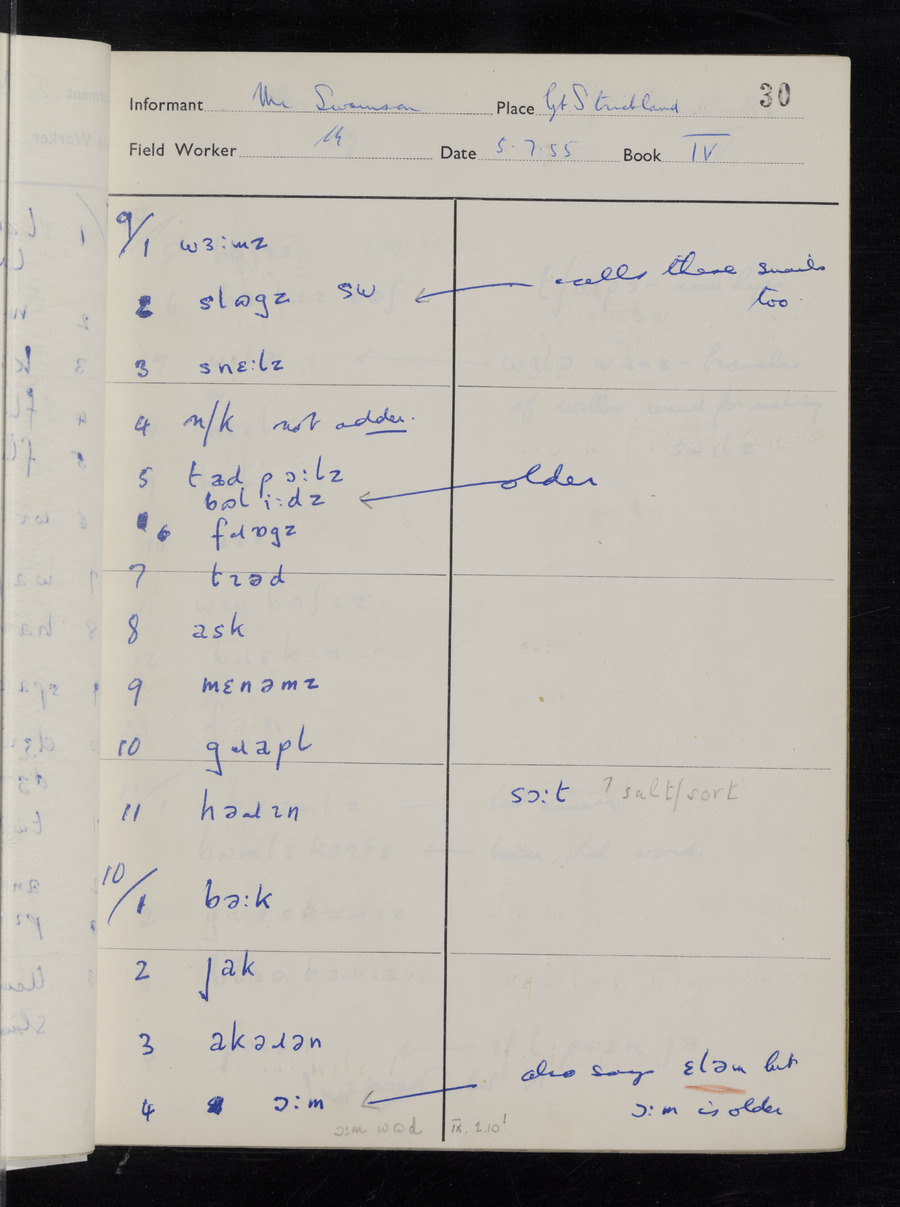 30
Informant Mr Swainson Place Gt Strickland
Field Worker Date 5.7.55 Book IV
9/1 wɜːmz
2 slɒgz sw ← calls these snails
too.
3 snɛːlz
4 n/k not adder.
5 tɪəd pɔːlz
bʊl iːdz ← older
6 fɹɒgz
7 tɪəd
8 ask
9 mɛnəmz
10 gɹapl
11 həɹɪn sɔːt ? salt/sort
10/1 bəːk
2 jak
3 akəɹən
also says ɛləm but
4 ɔːm ← ɔːm is older
ɔːm wʊd IX.2.10'